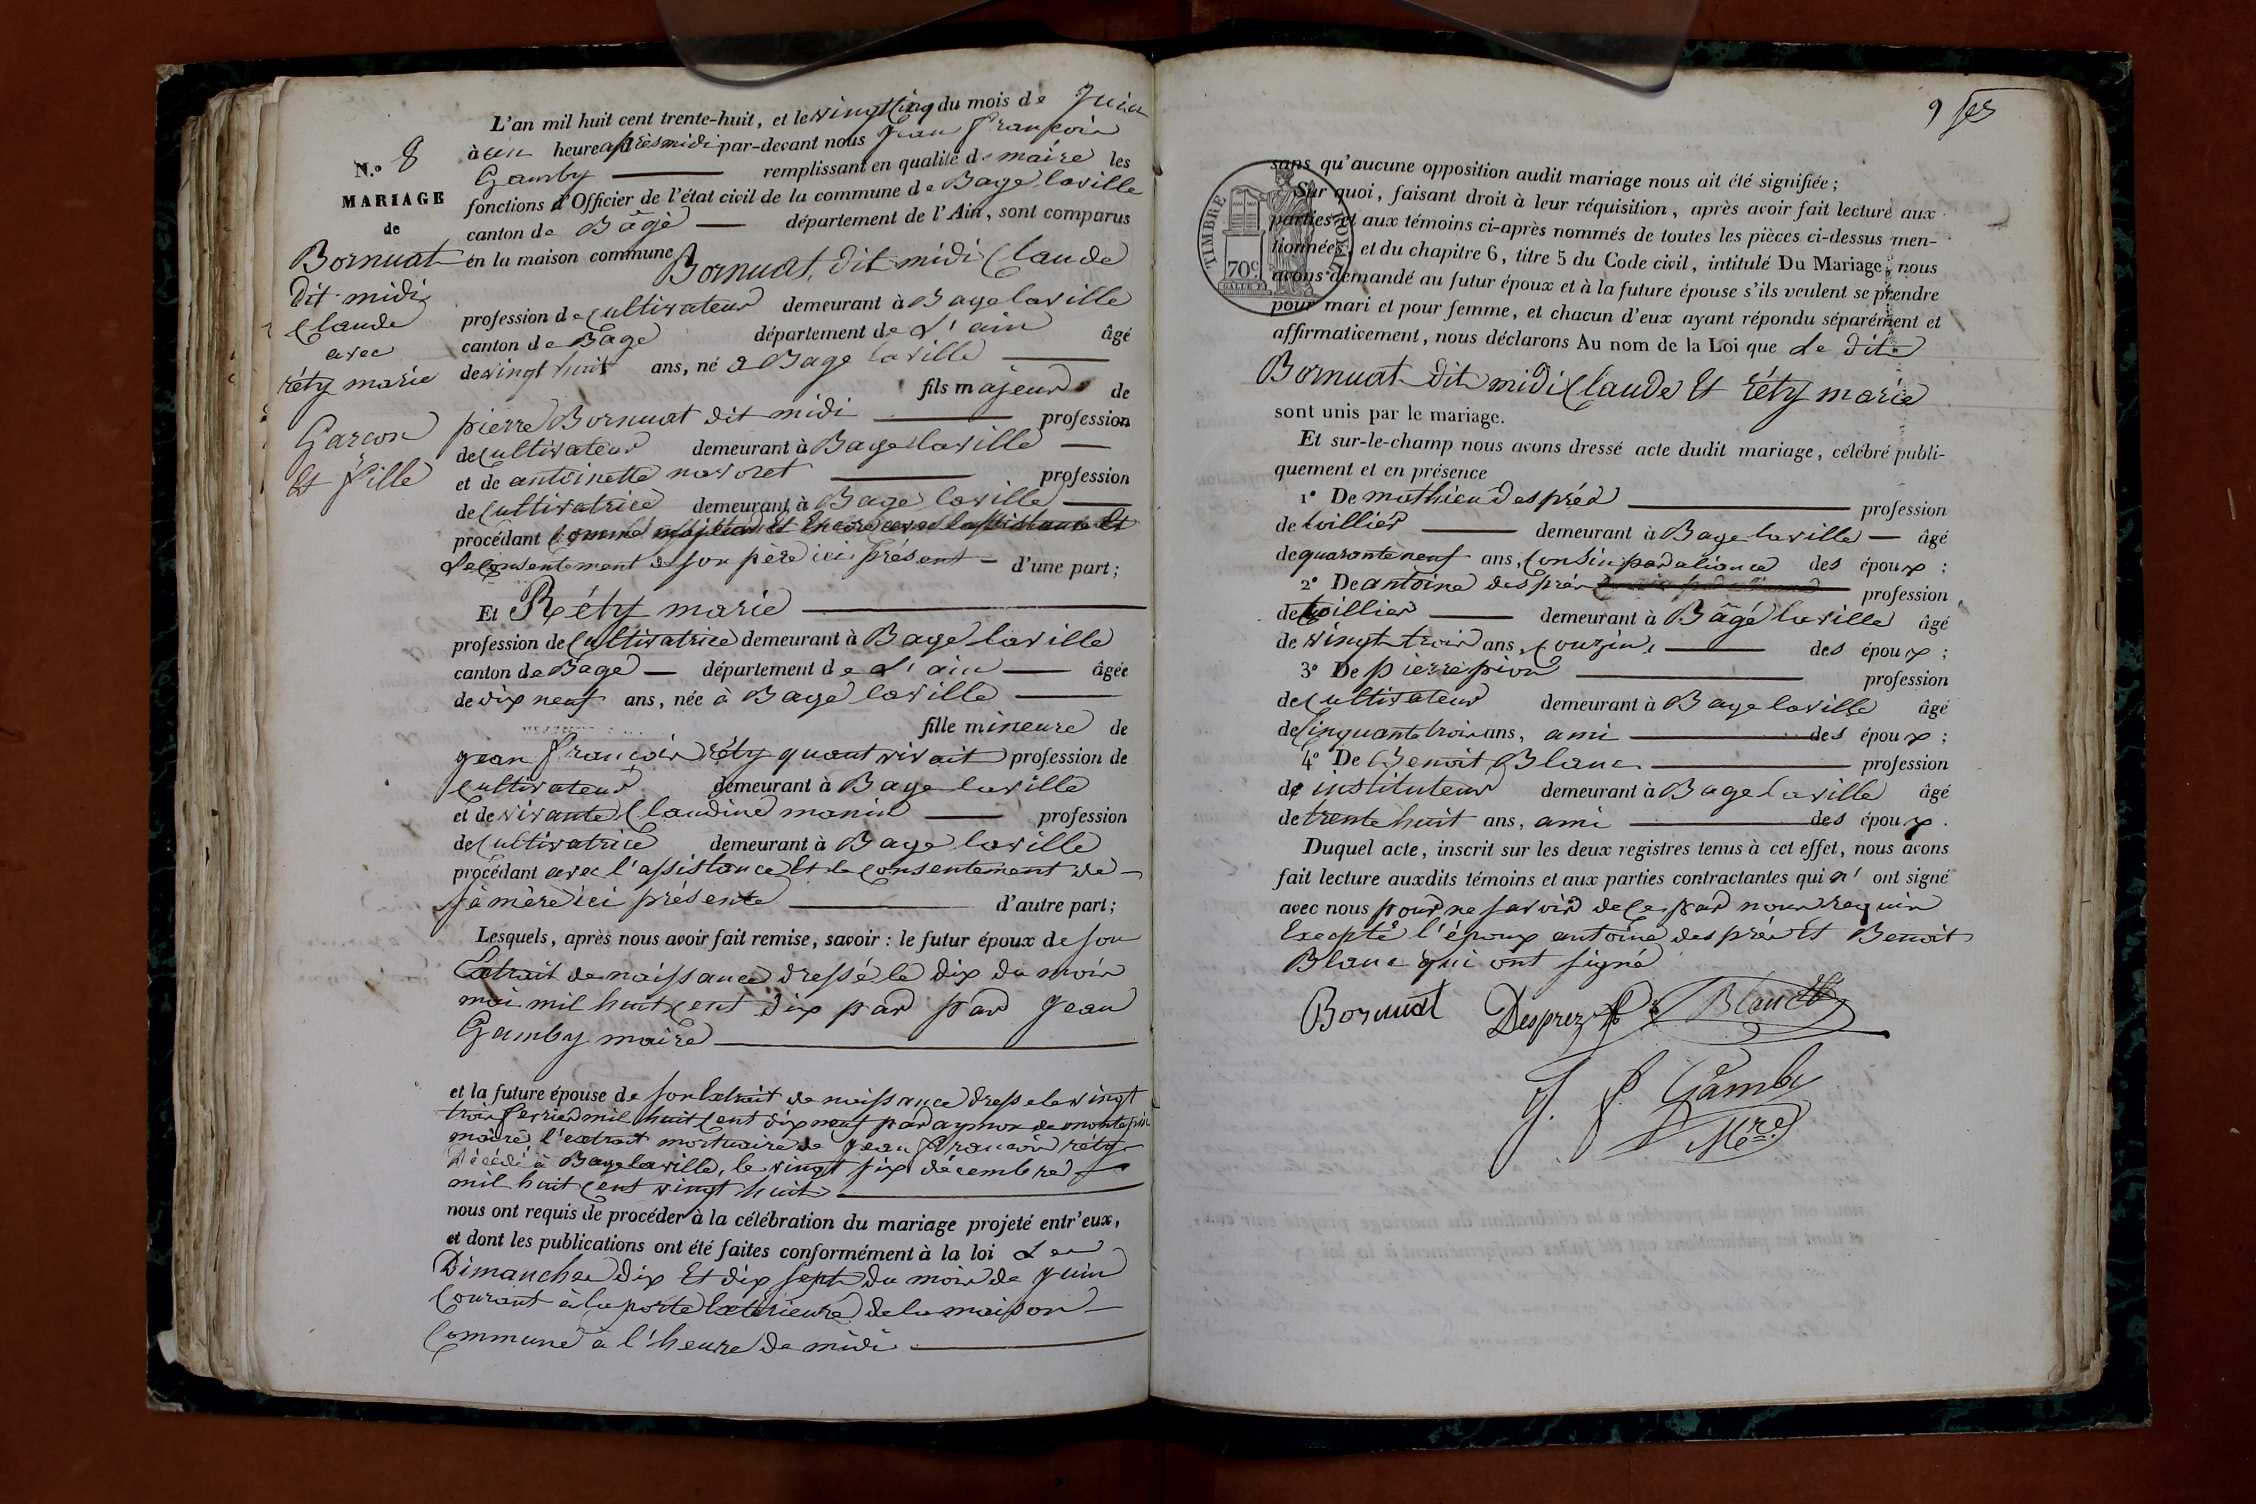 N.º 8
MARIAGE
de
Bornuat
dit midi
Claude
avec
réty marie
Garcon
Et fille
L'an mil huit cent trente-huit, et le vingt Cinq du mois de Juin
à un heure après midi par-devant nous Jean François
Gamby remplissant en qualité de maire les
fonctions d'Officier de l'état civil de la commune de Bagé laville
canton de Bâgé département de l'Ain, sont comparus
en la maison commune Bornuat, dit midi Claude
profession de Cultivateur demeurant à Bagé laville
canton de Bagé département de L'ain âgé
de vingt huit ans, né à Bagé laville
fils majeur de
pierre Bornuat dit midi profession
de Cultivateur demeurant à Bagé laville
et de antoinette navoret profession
de Cultivatrice demeurant à Bagé laville
procédant Comme majeur Et Encore avec l'assistance Et
Le Consentement de son père ici présent d'une part;
Et Réty marie
profession de Cultivatrice demeurant à Bagé laville
canton de Bagé département de L'ain âgée
de dix neuf ans, née à Bagé laville
fille mineure de
jean françois réty quant vivait profession de
Cultivateur demeurant à Bagé laville
et de vivante Claudine manin profession
de Cultivatrice demeurant à Bagé laville
procédant avec l'assistance Et le Consentement de
sa mère ici présente d'autre part;
Lesquels, après nous avoir fait remise, savoir: le futur époux de son
Extrait de naissance dressé le dix du mois
mai mil huit Cent dix par par Jean
Gamby maire
et la future épouse de son Extrait de naissance dressé le vingt
trois fevrier mil huit Cent dix neuf par aymon de
maire, l'extrait mortuaire de Jean François réty
Décédé à Bagé laville, le vingt six décembre
mil huit Cent vingt huit
nous ont requis de procéder à la célébration du mariage projeté entr'eux,
et dont les publications ont été faites conformément à la loi Les
Dimanches dix Et dix sept du mois de Juin
Courant à la porte Extérieure de la maison
Commune à l'heure de midi
9 fes
TIMBRE ROYAL
70 c
sans qu'aucune opposition audit mariage nous ait été signifiée;
Sur quoi, faisant droit à leur réquisition, après avoir fait lecture aux
parties et aux témoins ci-après nommés de toutes les pièces ci-dessus men-
tionnées, et du chapitre 6, titre 5 du Code civil, intitulé Du Mariage, nous
avons demandé au futur époux et à la future épouse s'ils veulent se prendre
pour mari et pour femme, et chacun d'eux ayant répondu séparément et
affirmativement, nous déclarons Au nom de la Loi que Le dit
Bornuat dit midi Claude Et réty marie
sont unis par le mariage.
Et sur-le-champ nous avons dressé acte dudit mariage, célébré publi-
quement et en présence
1º De mathieu després profession
de toillier demeurant à Bagé laville âgé
de quarante neuf ans, Consin par aliance des époux;
2º De antoine després profession
de toillier demeurant à Bâgé laville âgé
de vingt trois ans, Couzin, des époux;
3º De pierre pion profession
de Cultivateur demeurant à Bagé laville âgé
de Cinquante trois ans, ami des époux;
4º De Benoit Blanc profession
de instituteur demeurant à Bagé laville âgé
de trente huit ans, ami des époux.
Duquel acte, inscrit sur les deux registres tenus à cet effet, nous avons
fait lecture auxdits témoins et aux parties contractantes qui n' ont signé
avec nous pour ne savoir de Ce par nous requis
Excepté l'époux antoine després Et Benoit
Blanc qui ont signé
Bornuat Desprez Blanc
J. F. Gamby
Mre